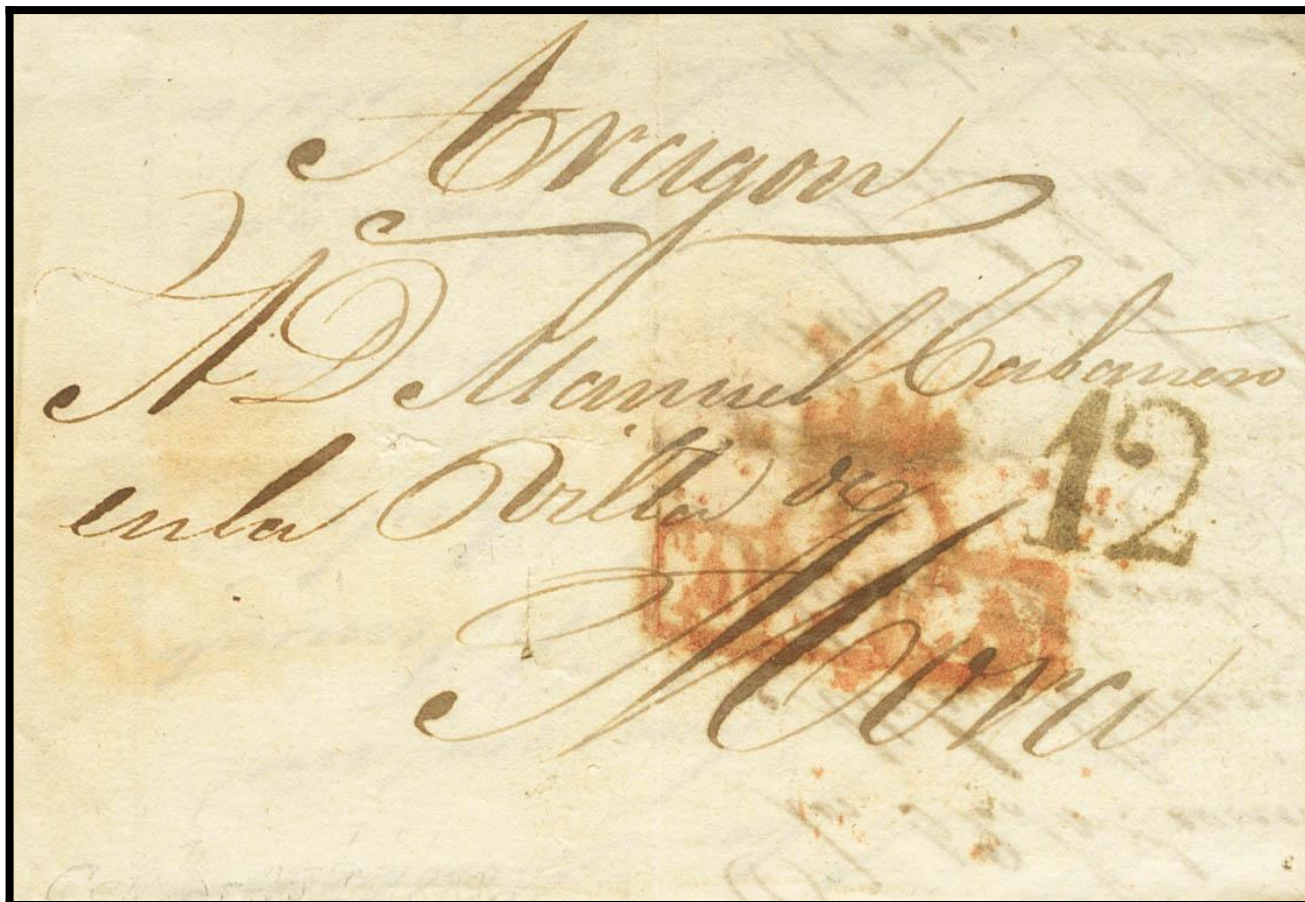 Aragon
A D Manuel Cabanero
en la Villa de
Mora
12